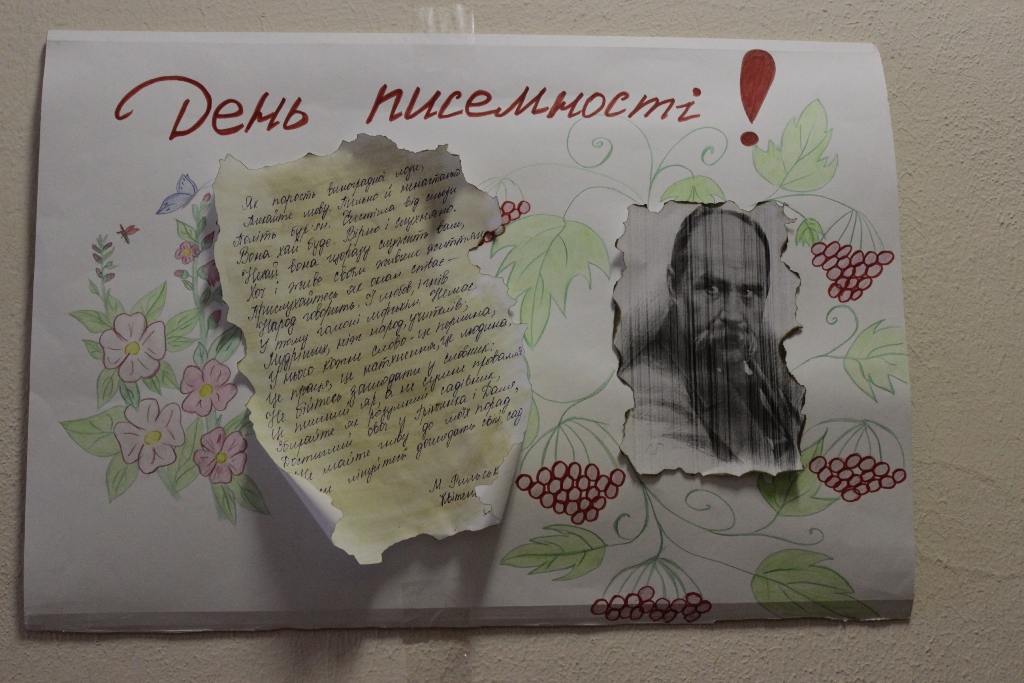 День писемності!
Як парость виноградної лози,
Плекайте мову. Пильно й ненастанно
Політь бур'ян. Чистіша від сльози
Вона хай буде. Вірно і слухняно.
Нехай вона щоразу служить вам,
Хоч і живе своїм живим життям
Прислухайтесь як океан співає-
Народ говорить. І любов, і гнів
У тому гомоні морськім. Немає
Мудріших, ніж народ, учителів;
У нього кожне слово-це перлина,
Це праця, це натхнення, це людина.
Не бійтесь заглядати у словник:
Це пишний яр, а не сумне провалля
Збирайте як розумний садівник
Достиглий овоч у Грінченка і Даля,
Не майте гніву до моїх порад
не лінуйтесь доглядать свій сад
М. Рильськ